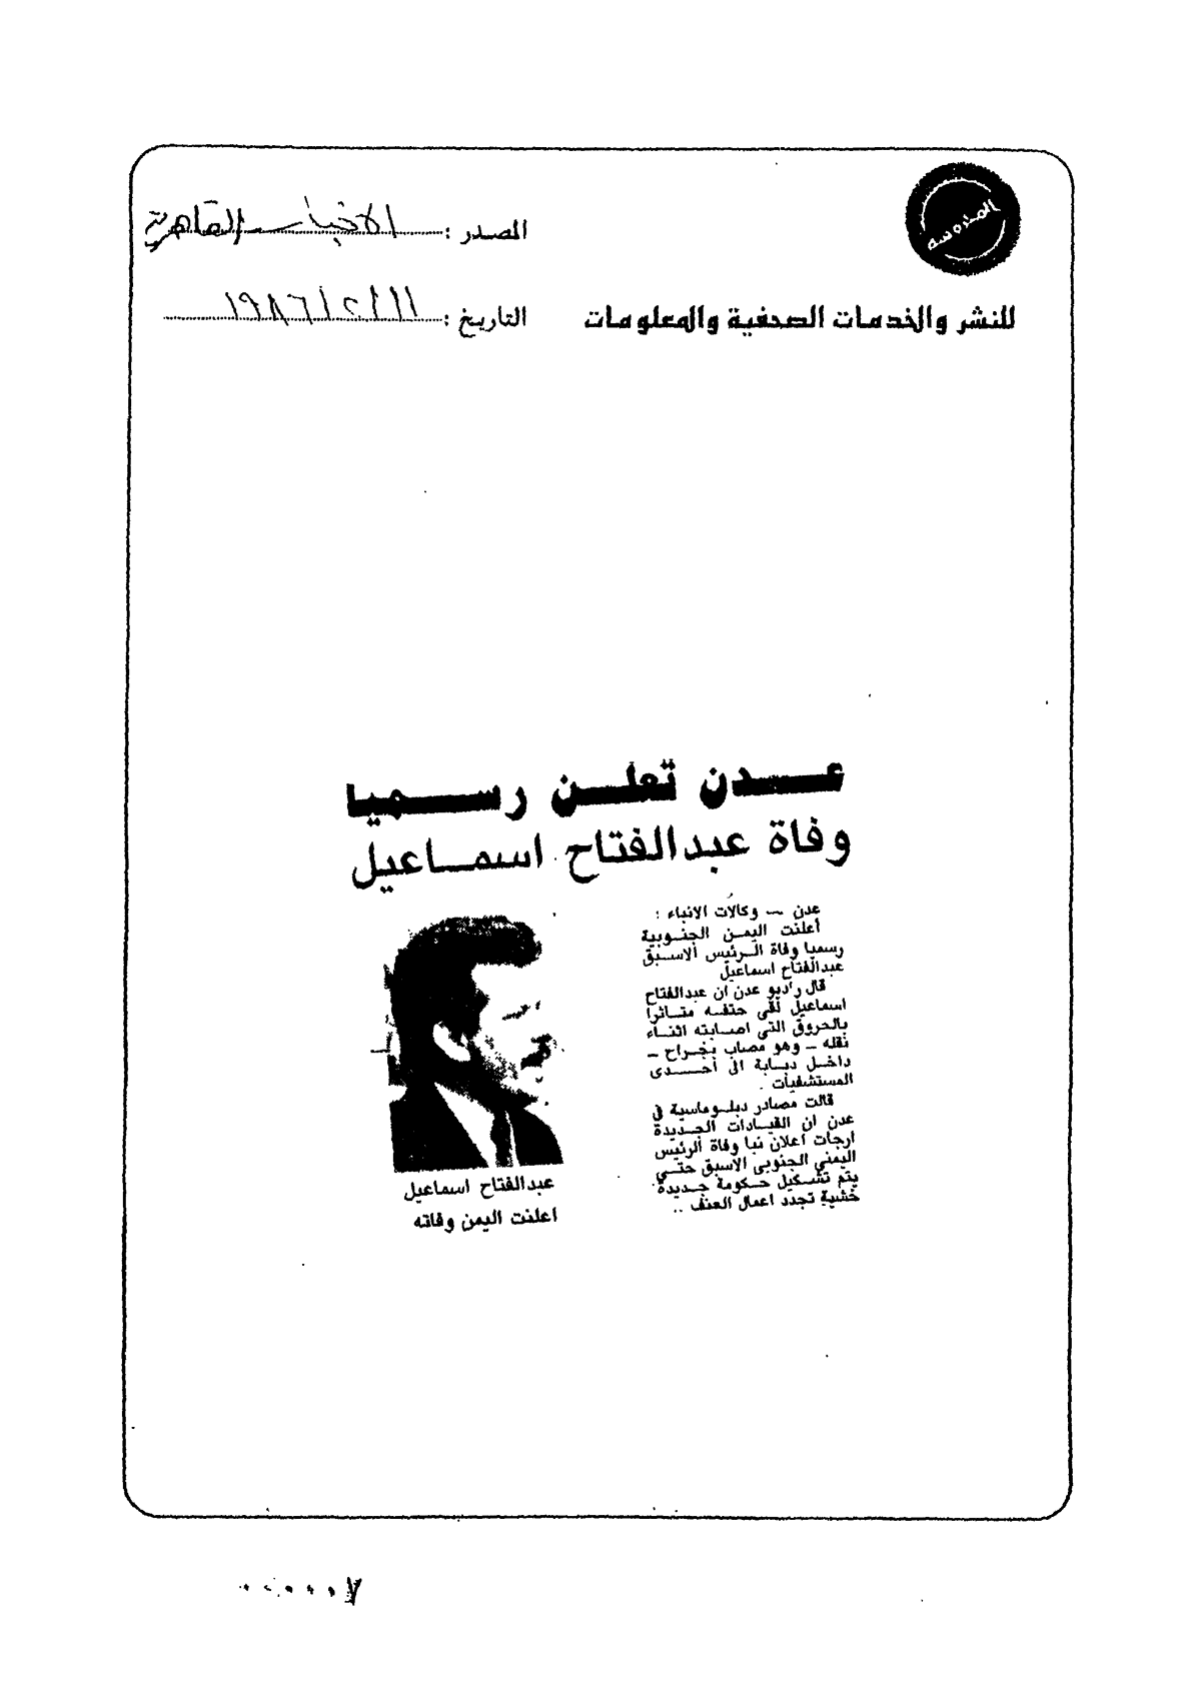 المحروسة
للنشر والخدمات الصحفية والمعلومات
المصدر : الاخبار القاهرية
التاريخ : ١١/٢/١٩٨٦
عدن تعلن رسميا
وفاة عبدالفتاح اسماعيل
عدن - وكالات الانباء :
أعلنت اليمن الجنوبية
رسميا وفاة الرئيس الاسبق
عبدالفتاح اسماعيل
قال راديو عدن ان عبدالفتاح
اسماعيل لقى حتفه متاثرا
بالحروق التى اصابته اثناء
نقله - وهو مصاب بجراح -
داخل دبابة الى احدى
المستشفيات .
قالت مصادر دبلوماسية فى
عدن ان القيادات الجديدة
ارجات اعلان نبا وفاة الرئيس
اليمنى الجنوبى الاسبق حتى
يتم تشكيل حكومة جديدة
خشية تجدد اعمال العنف ..
عبدالفتاح اسماعيل
اعلنت اليمن وفاته